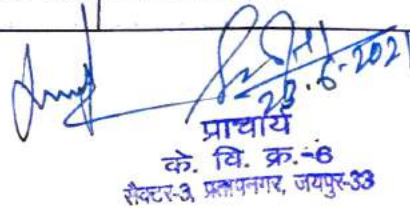 23.6.2021
प्राचार्य
के. वि. क्र.-6
सैक्टर-3, प्रतापनगर, जयपुर-33